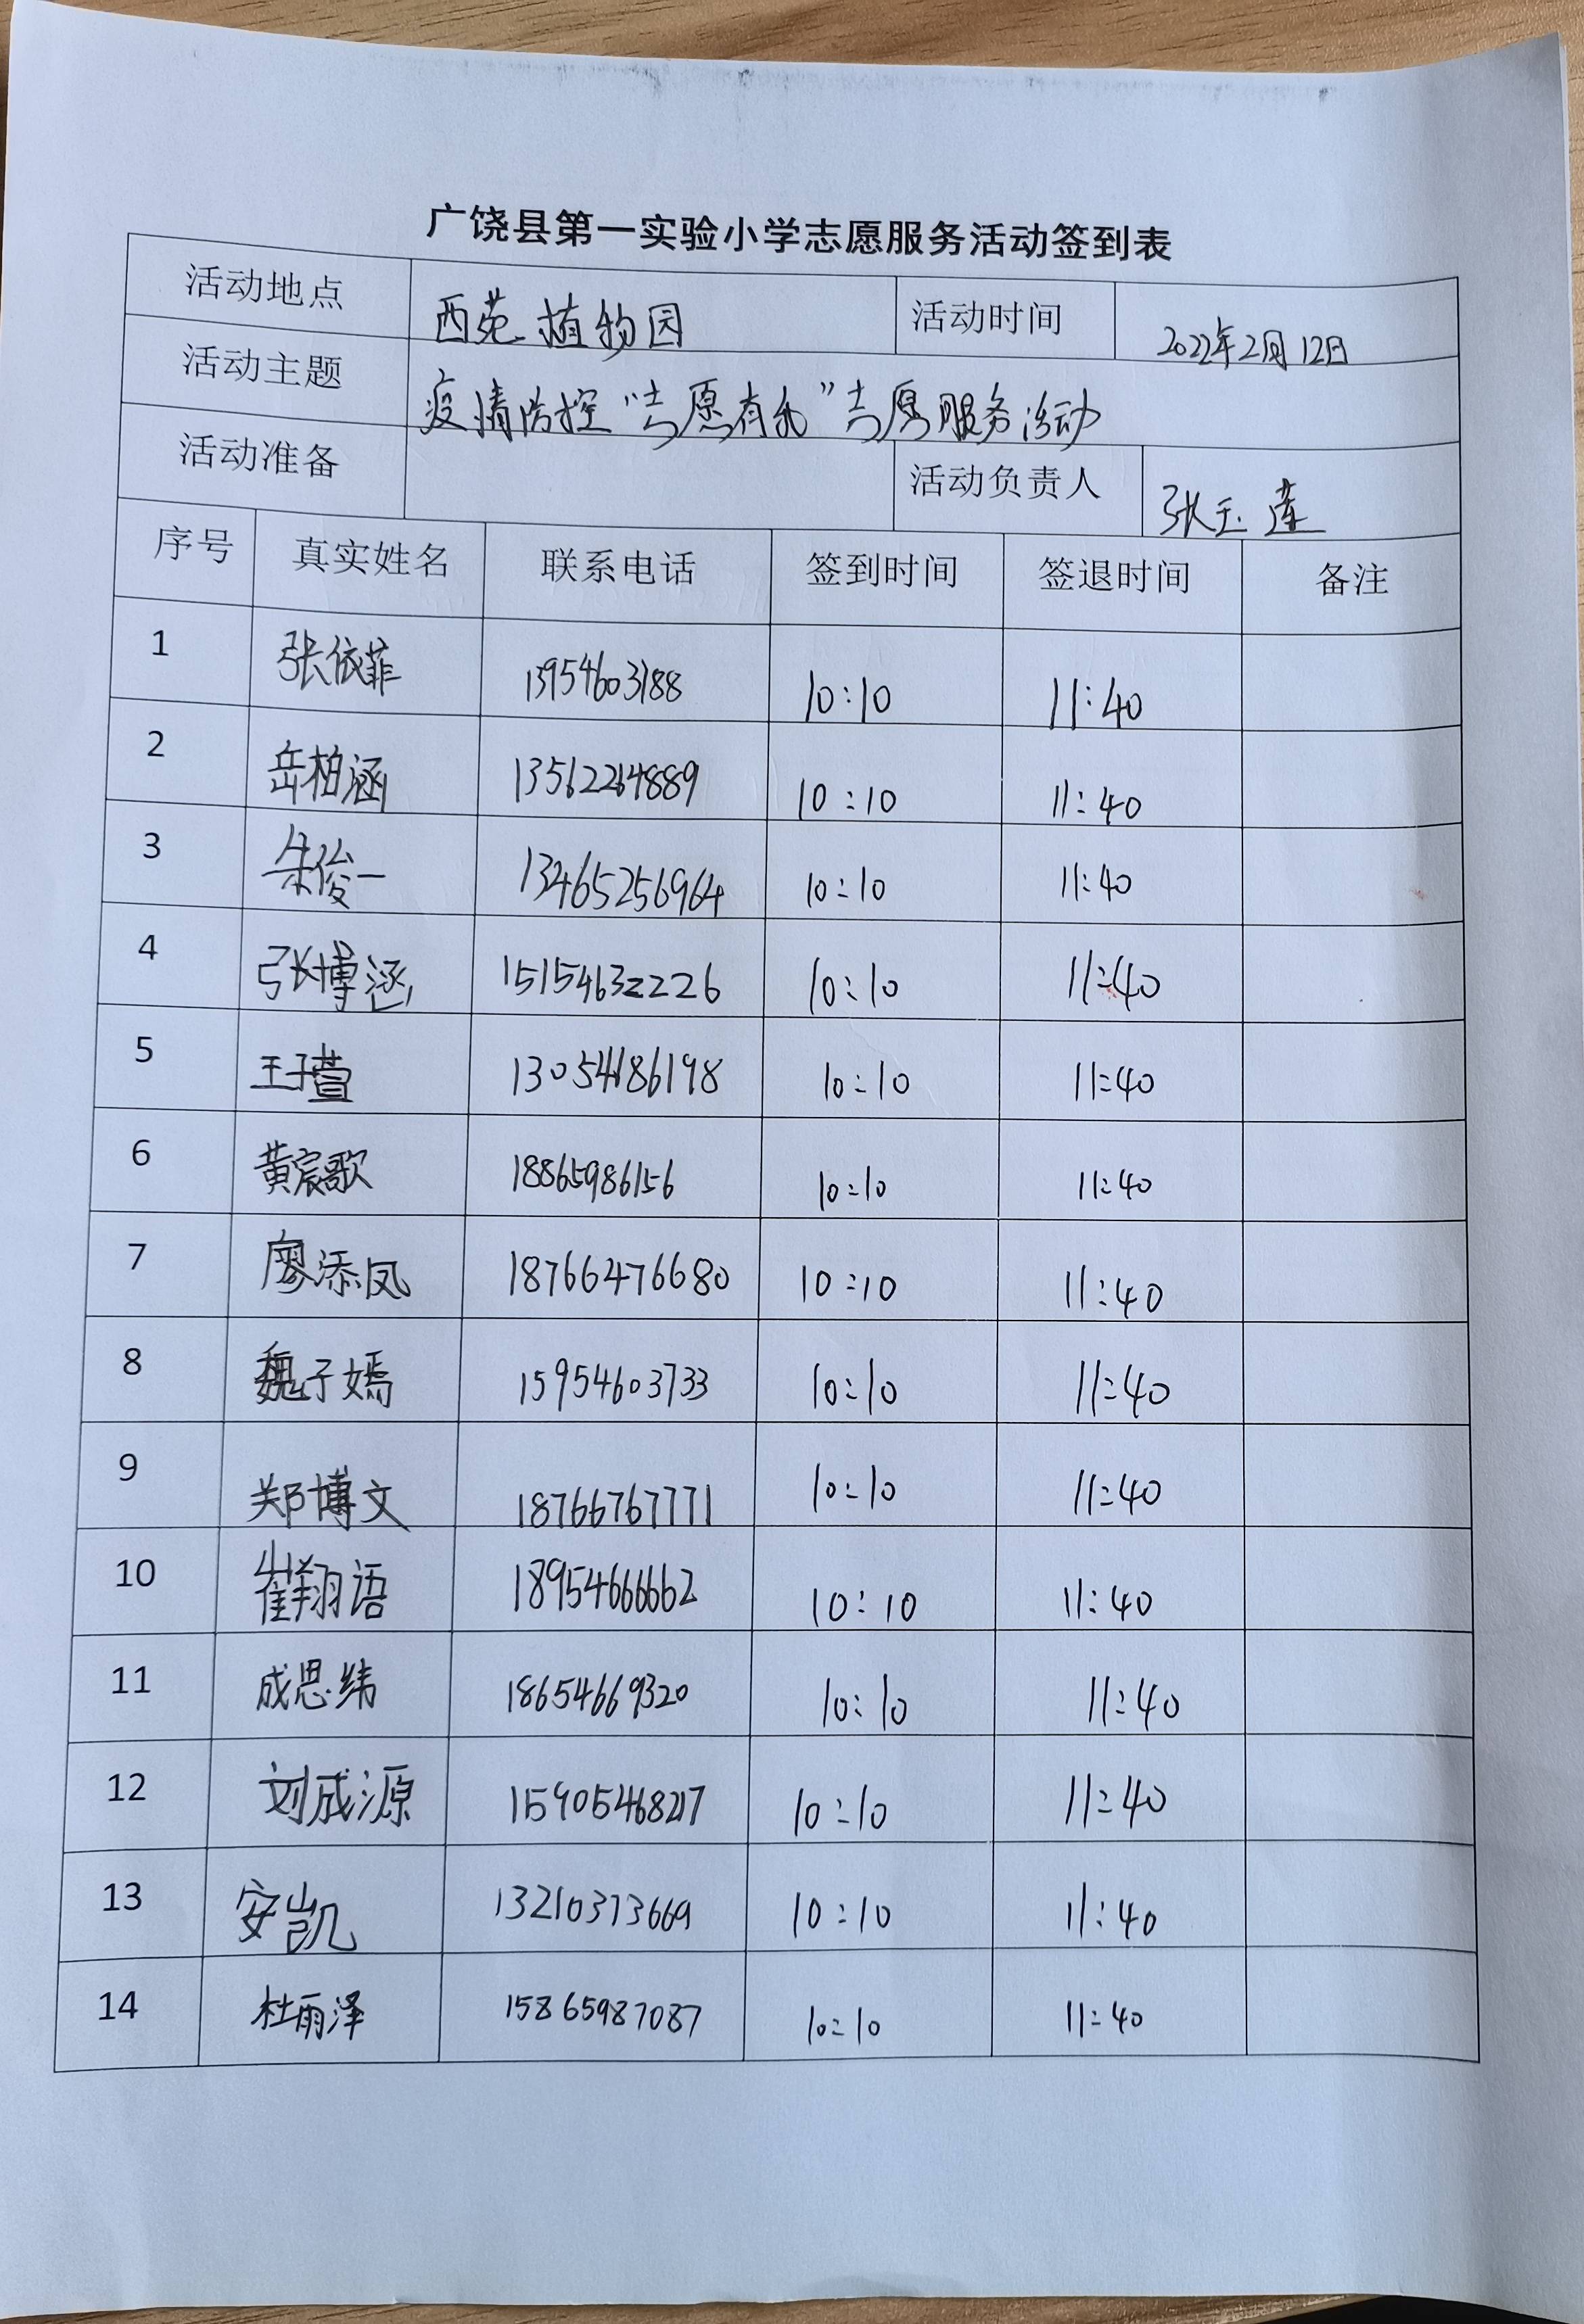 广饶县第一实验小学志愿服务活动签到表
活动地点 西苑植物园 活动时间 2022年2月12日
活动主题 疫情防控“志愿有我”志愿服务活动
活动准备 活动负责人 张玉莲
序号 真实姓名 联系电话 签到时间 签退时间 备注
1 张依菲 13954603188 10:10 11:40
2 岳柏涵 13562264889 10:10 11:40
3 朱俊一 13465256964 10:10 11:40
4 张博涵 15154632226 10:10 11:40
5 王子萱 13054686198 10:10 11:40
6 黄宸歌 18865986156 10:10 11:40
7 廖添凤 18766476680 10:10 11:40
8 魏子嫣 15954603733 10:10 11:40
9 郑博文 18766767771 10:10 11:40
10 崔翔语 18954666662 10:10 11:40
11 成思纬 18654669320 10:10 11:40
12 刘成源 15905468217 10:10 11:40
13 安凯 13210373669 10:10 11:40
14 杜雨泽 15865987087 10:10 11:40